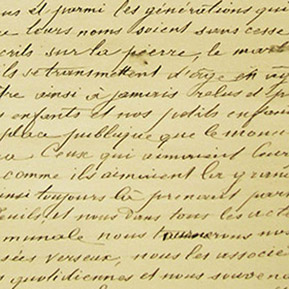 ous et parmi les générations qui
e leurs noms soient sans cesse
crits sur la pierre, le mar
ils se transmettent d'âge en
tre ainsi à jamais relus et
s enfants et nos petits enfan
place publique que le monu
Ceux qui aimaient leur
comme ils aimaient la grand
insi toujours là prenant par
euils et nous dans tous les act
munale nous tournerons nos
sées verseux, nous les associe
s quotidiennes et nous souven